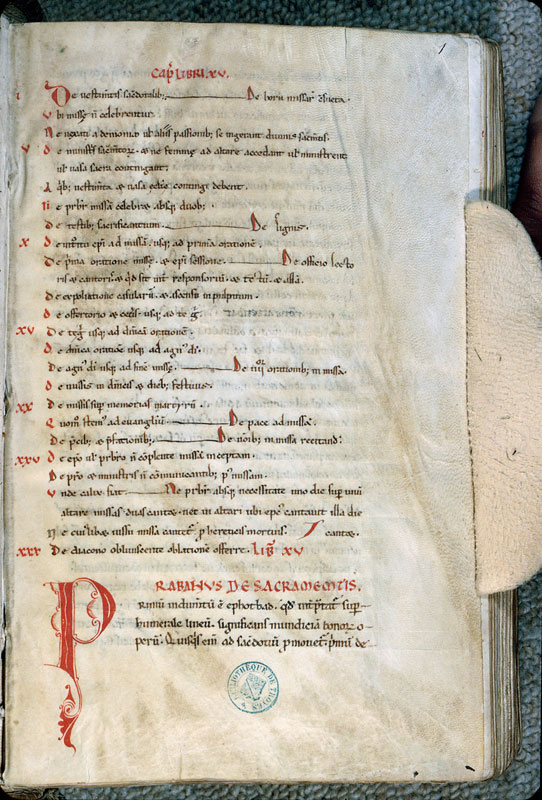 1
Cap̄ LIBRI XV.
I De uestim̄tis sac̄dotalib; De hora missar̄
Vbi missę n̄ celebrentur
Ne uexati a demonio ul̄ aliis passionib; se ingerant diuinis
V De ministris ⁊ ne feminę ad altare accedant ul̄ ministrent
ul̄ uasa sacra contingant.
A qb; uestim̄ta ⁊ uasa contingi debent.
Ne pr̄br missā celebret absq; duob;
De testib; sacrificantium. De signis.
X De introitu ep̄i ad missā. usq; ad primā orationē.
De p̄ma oratione missę. ⁊ ep̄i sessione. De officio lecto
ris ⁊ cantoris. ⁊ qd sit int̄ responsoriū.
De expoliatione casularū. ⁊ ascensu in pulpitum.
De offertorio ⁊ usq; ad te ḡ.
XV De te ḡ usq; ad dn̄icā orationē.
De dn̄ica oratiōe usq; ad agn' dī.
De agn' dī usq; ad finē missę. De IIIIor orationib; in missa.
De missis in dn̄icis ⁊ dieb; festiuis.
XX De missis sup̄ memorias martyrū
Quom̄ stem' ad euangl̄iū De pace ad missā.
De p̄cib; ⁊ p̄fationib; De in missa recitand'.
XXV De ep̄o ul̄ pr̄bro n̄ cōplente missā inceptam.
De pr̄o ⁊ ministris n̄ cōmunicantib; p' missam.
Vnde calix fiat. Ne pr̄br absq; necessitate uno die sup̄ unū
altare missas duas cantet. nec in altari ubi ep̄c cantauit illa die
Ne cuilibet iussu missā cantet p̄ hereticis mortuis. cantet.
XXX De diacono obliuiscente oblationē offerre. LIB̄ XV
RABANVS DE SACRAMENTIS.
Primū indum̄tū ē ephotbad. qd int̄p̄tat' sup̄-
humerale lineū. significans mundiciā bonor̄ o-
perū. Quisq;s enī ad sac̄dotiū p̄mouet'. p̄mū de-
BIBLIOTHEQUE DE TROYES